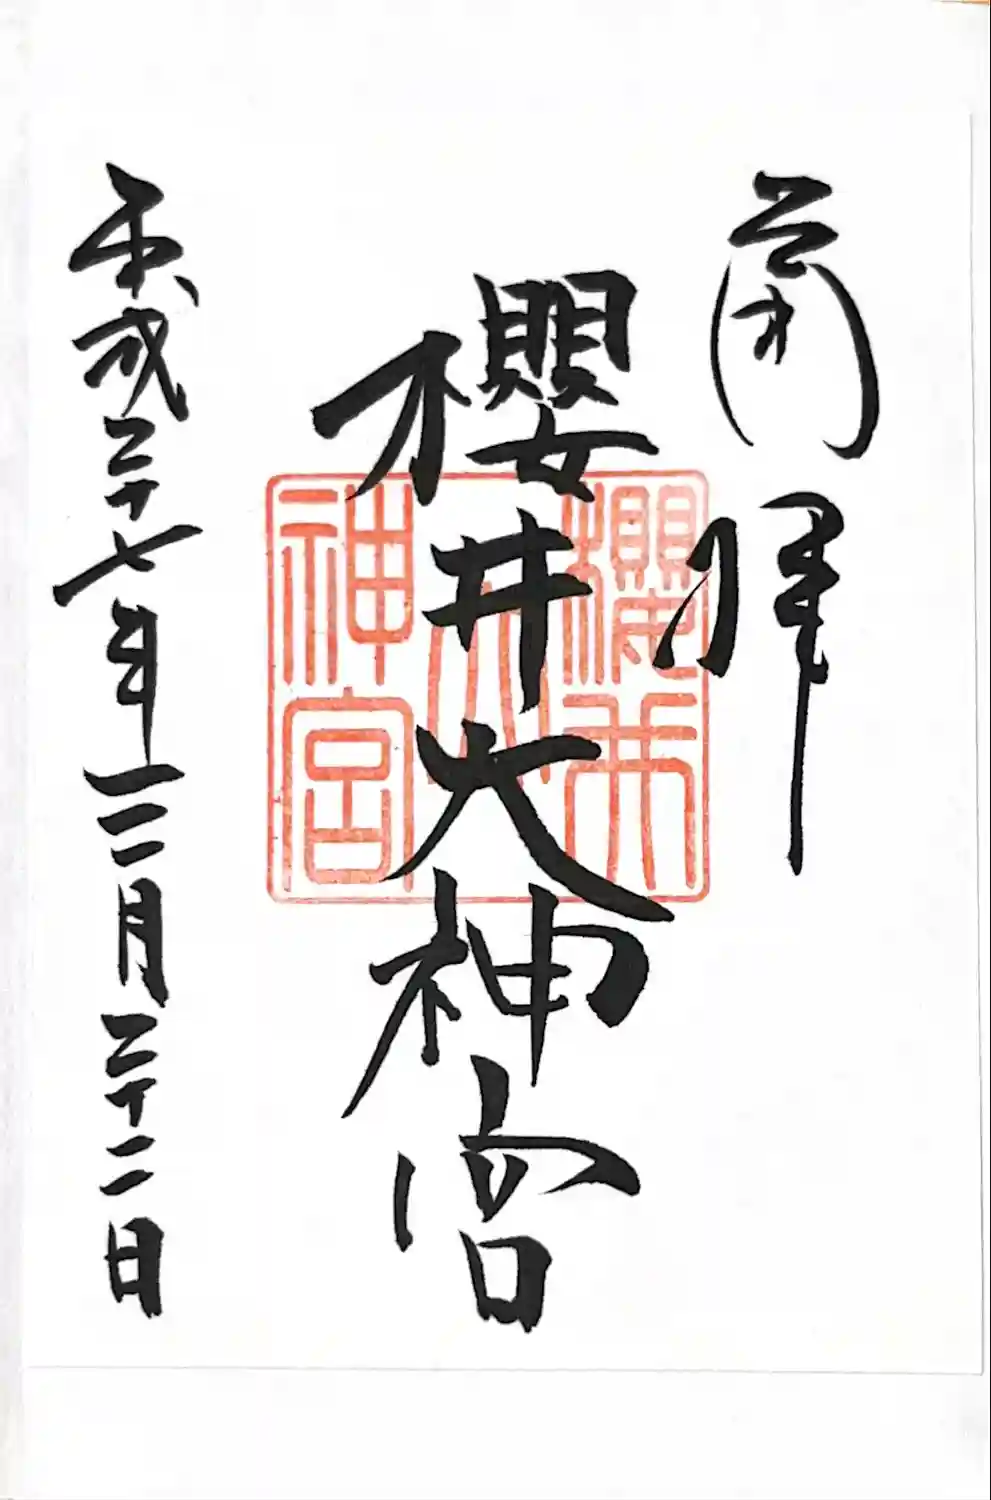 奉拝
櫻井大神宮
平成二十七年三月二十二日
櫻井
大
神宮